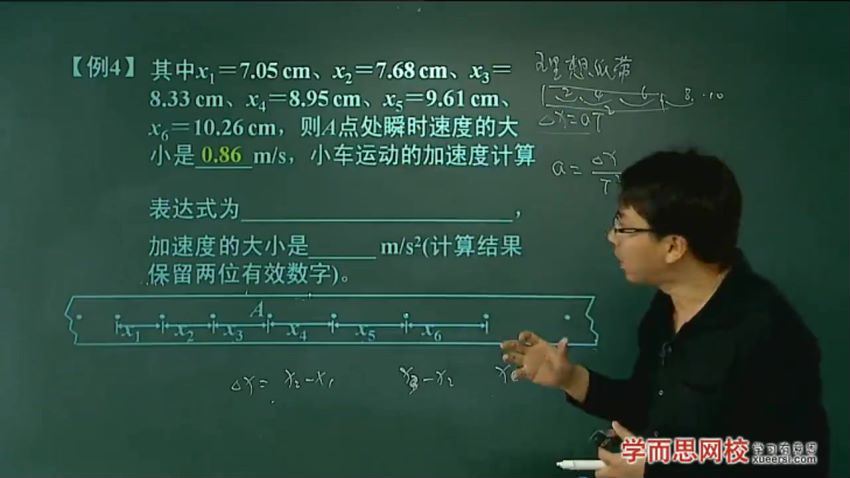 【例4】其中x₁=7.05 cm、x₂=7.68 cm、x₃=
8.33 cm、x₄=8.95 cm、x₅=9.61 cm、
x₆=10.26 cm，则A点处瞬时速度的大
小是 0.86 m/s，小车运动的加速度计算
表达式为____________________，
加速度的大小是______ m/s²(计算结果
保留两位有效数字)。
A
x₁ x₂ x₃ x₄ x₅ x₆
理想纸带
2 4 6 8 ..10
Δx=aT²
a=Δx/T²
Δx= x₂-x₁ x₃-x₂
学而思网校
学习有意思
xueersi.com